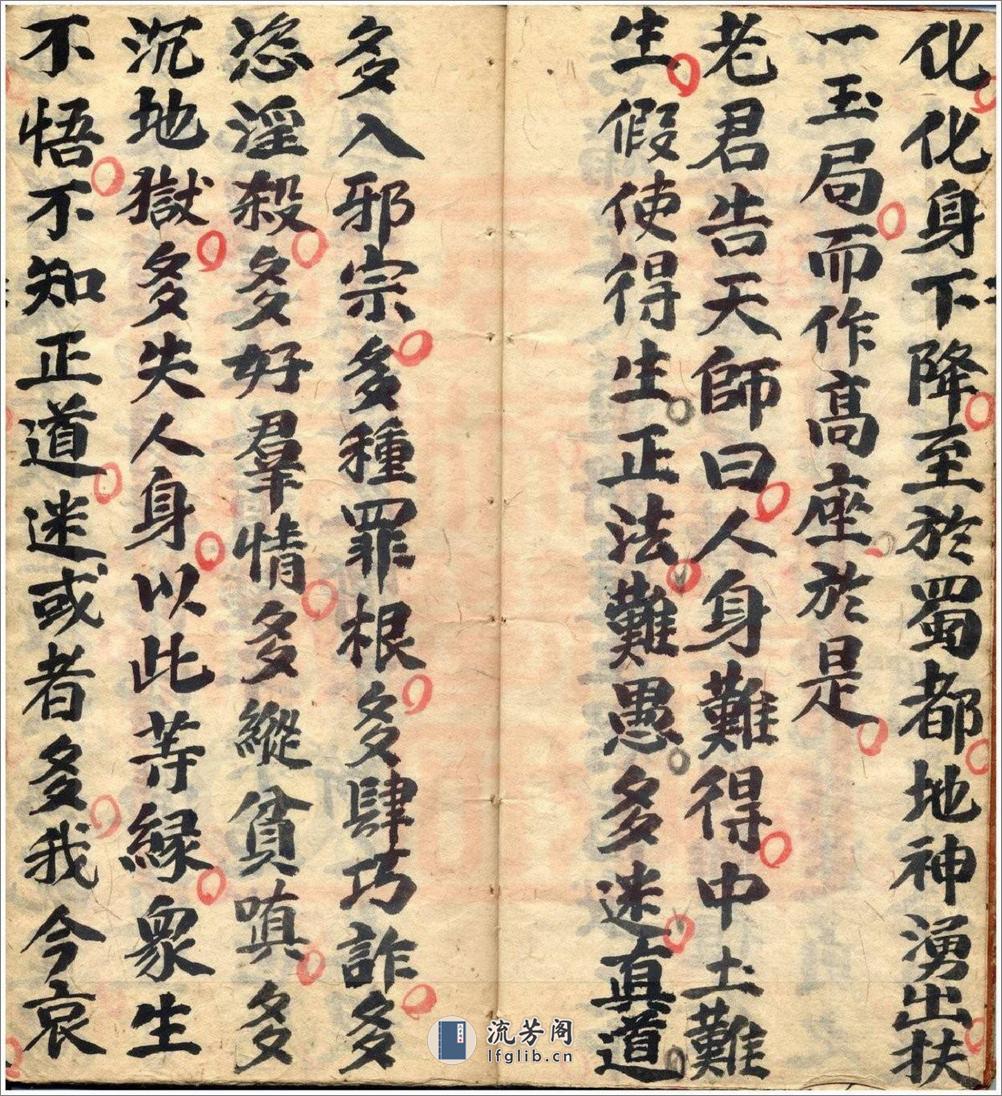 化化身下降至於蜀都地神湧出扶
一玉局而作高座於是
老君告天師曰人身難得中土難
生假使得生正法難愚多迷真道
多入邪宗多種罪根多肆巧詐多
恣淫殺多好羣情多縱貪嗔多
沉地獄多失人身以此等緣衆生
不悟不知正道迷或者多我今哀
流芳阁
lfglib.cn